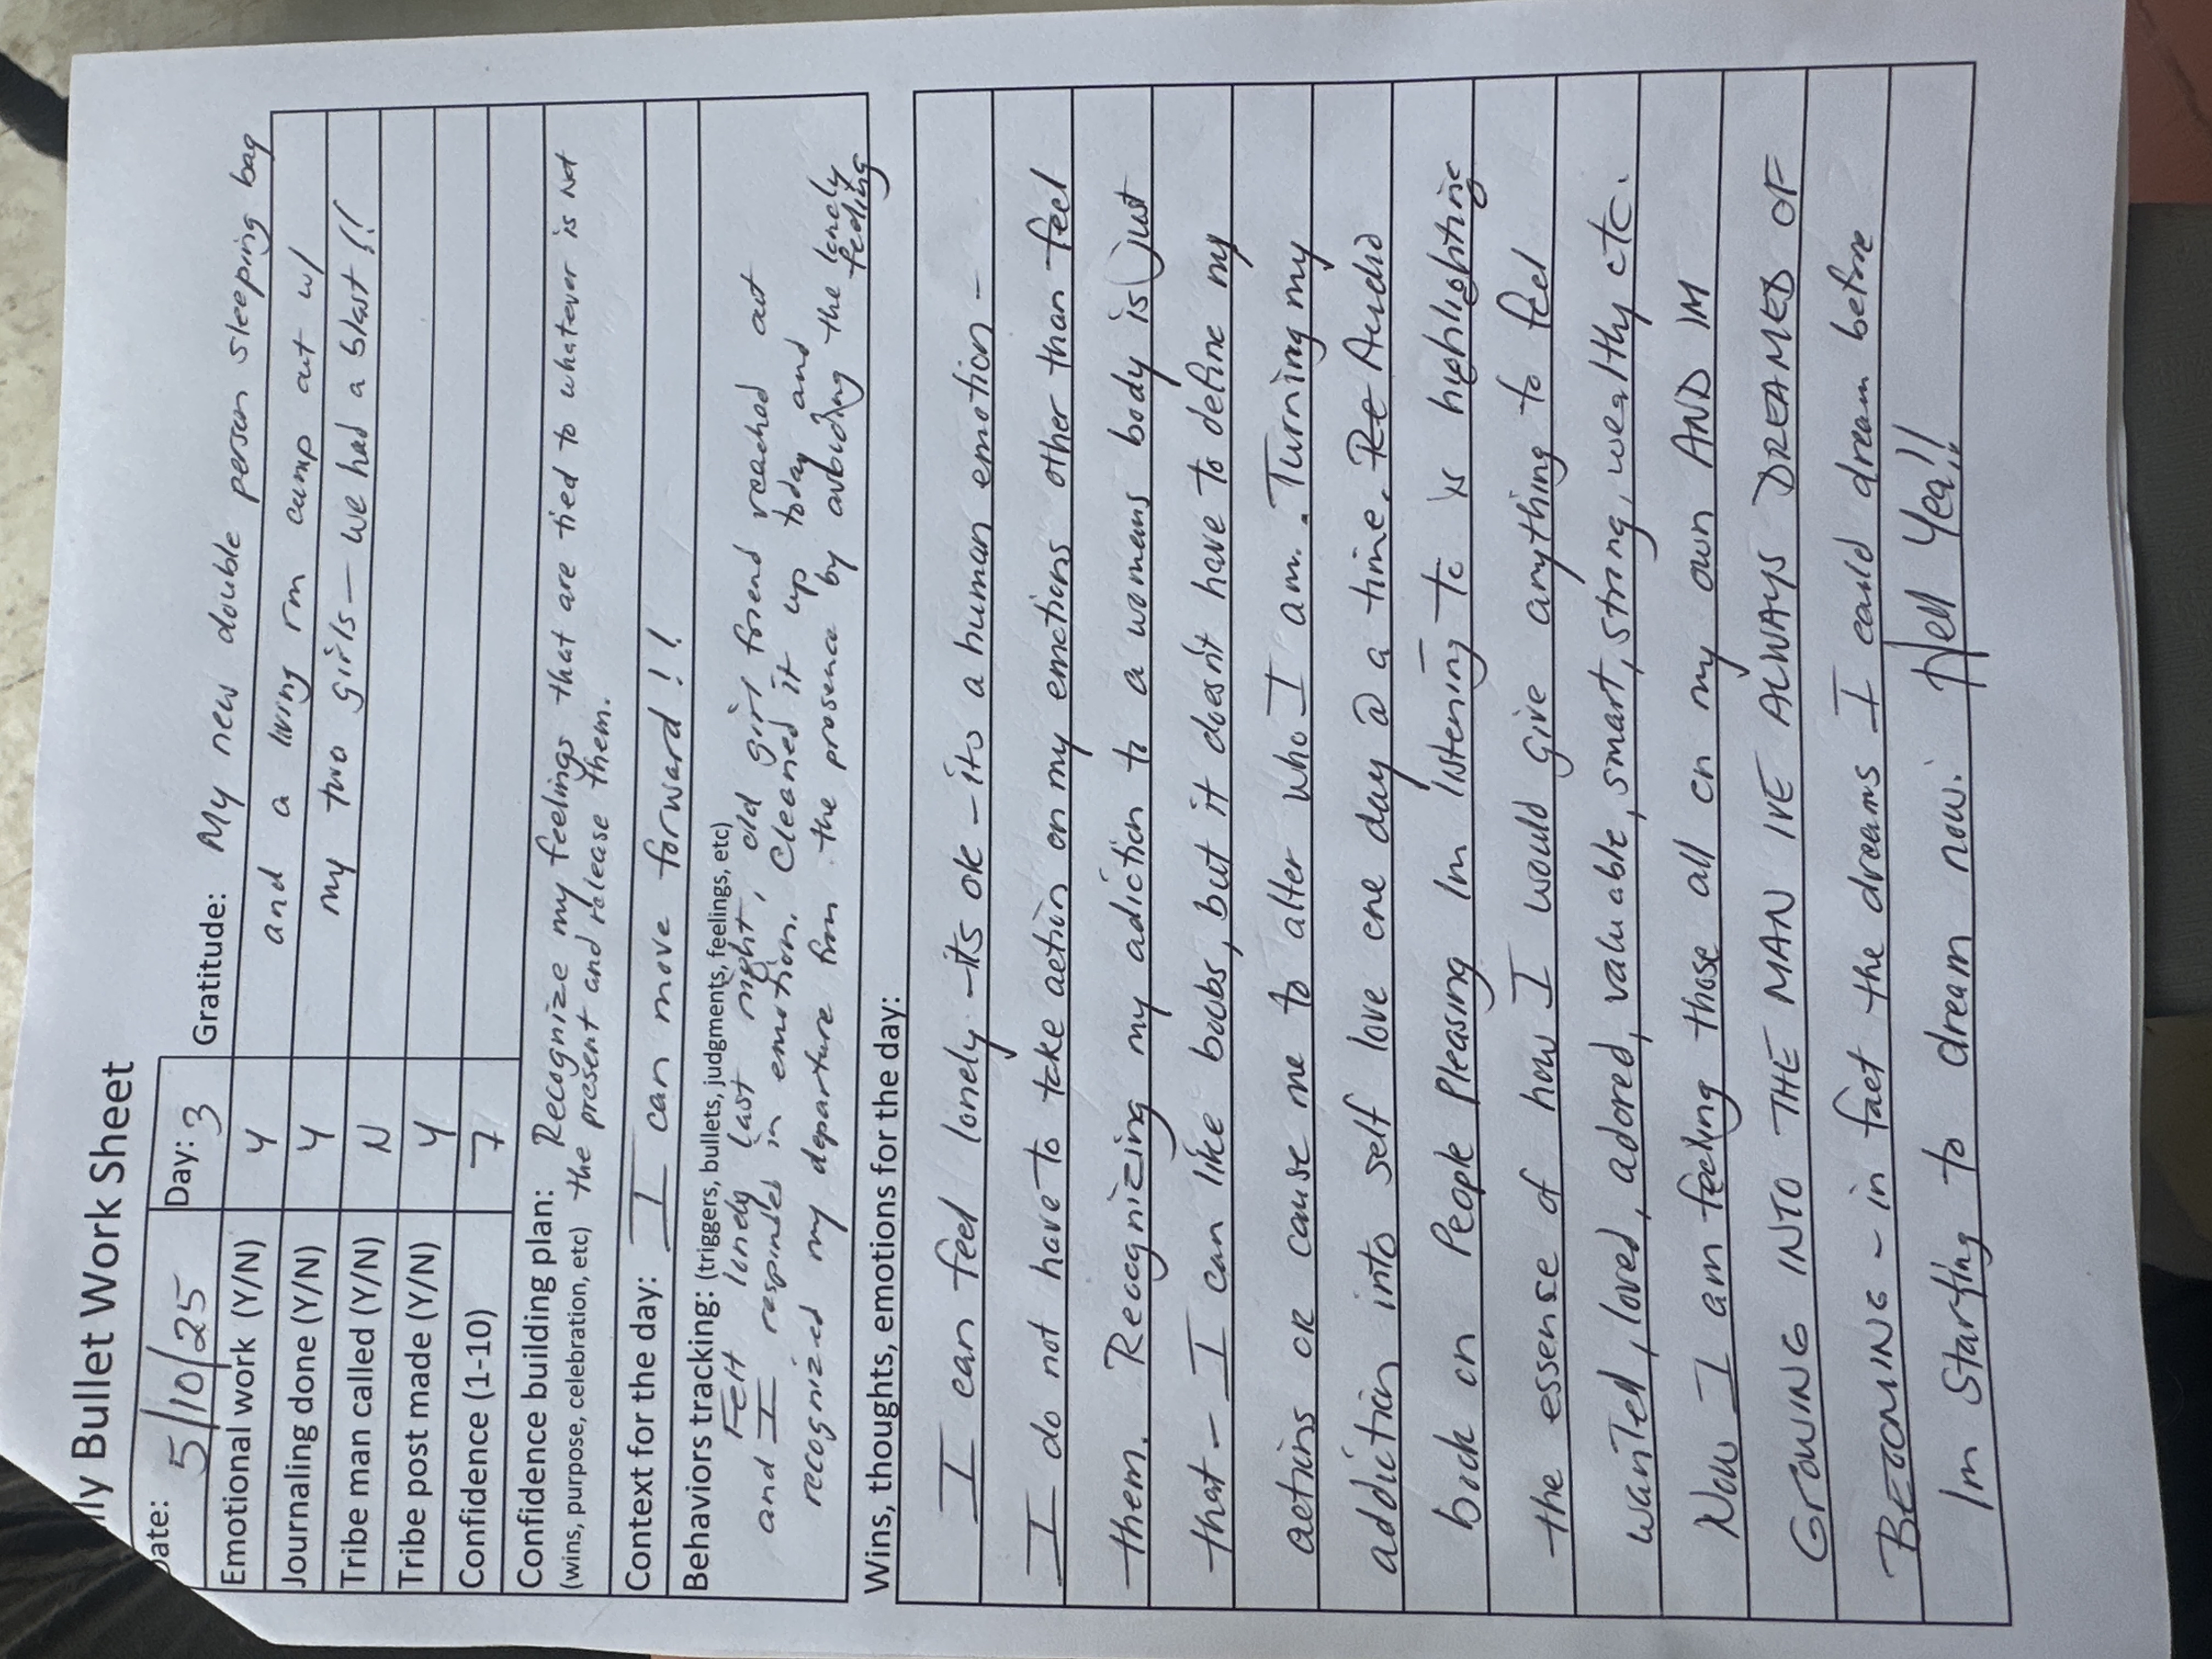 ily Bullet Work Sheet
Date: 5/10/25 Day: 3 Gratitude: My new double person sleeping bag
Emotional work (Y/N) Y and a living rm camp out w/
Journaling done (Y/N) Y my two girls - we had a blast!!
Tribe man called (Y/N) N
Tribe post made (Y/N) Y
Confidence (1-10) 7
Confidence building plan: Recognize my feelings that are tied to whatever is not
(wins, purpose, celebration, etc) the present and release them.
Context for the day: I can move forward!!
Behaviors tracking: (triggers, bullets, judgments, feelings, etc)
Felt lonely last night, old girl friend reached out
and I responded in emotion. Cleaned it up today and
recognized my departure from the presence by avoiding the lonely
feeling
Wins, thoughts, emotions for the day:
I can feel lonely - its ok - its a human emotion -
I do not have to take action on my emotions other than feel
them. Recognizing my adiction to a womens body is just
that - I can like boobs, but it doesn't have to define my
actions or cause me to alter who I am. Turning my
addiction into self love one day @ a time. Re Audio
book on People Pleasing Im listening to is highlighting
the essense of how I would give anything to feel
wanted, loved, adored, valuable, smart, strong, wealthy etc.
Now I am feeling those all on my own AND IM
GROWING INTO THE MAN IVE ALWAYS DREAMED OF
BECOMING - in fact the dreams I could dream before
Im starting to dream now. Hell Yea!!